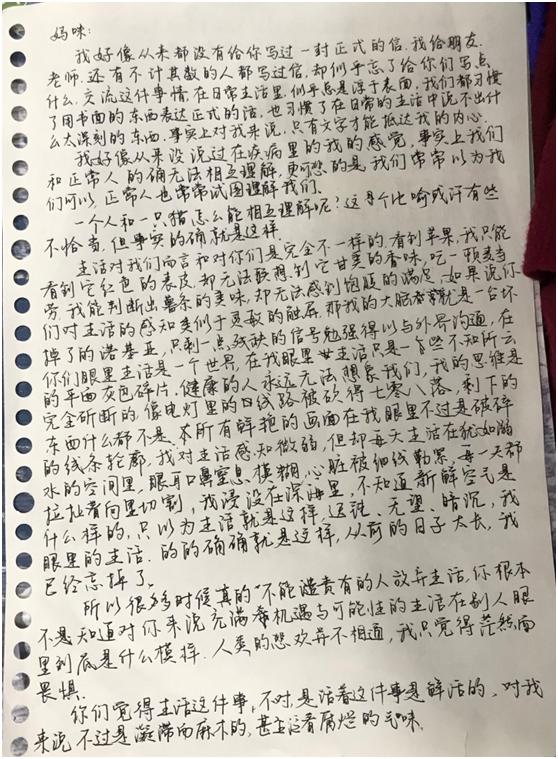 妈咪：
我好像从来都没有给你写过一封正式的信。我给朋友、
老师、还有不计其数的人都写过信，却似乎忘了给你们写点
什么。交流这件事情，在日常生活里，似乎总是浮于表面，我们都习惯
了用书面的东西表达正式的话，也习惯了在日常的生活中说不出什
么太深刻的东西。事实上对我来说，只有文字才能抵达我的内心。
我好像从来没说过在疾病里的我的感觉，事实上我们
和正常人的确无法相互理解，更可悲的是我们常常以为我
们可以，正常人也常常试图理解我们。
一个人和一只猫怎么能相互理解呢？这个比喻或许有些
不恰当，但事实的确就是这样。
生活对我们而言和对你们是完全不一样的，看到苹果，我只能
看到它红色的表皮，却无法联想到它甘美的香味，吃一顿麦当
劳，我能判断出薯条的美味，却无法感到饱腹的满足。如果说你
们对生活的感知类似于灵敏的触屏，那我的大脑就是一台坏
掉了的诺基亚，只剩一点残缺的信号勉强得以与外界沟通，在
你们眼里生活是一个世界，在我眼里生活只是一些不知所云
的平面灰色碎片。健康的人永远无法想象我们，我的思维是
完全斫断的，像电灯里的线路被砍得七零八落，剩下的
东西什么都不是，所有鲜艳的画面在我眼里不过是破碎
的线条轮廓，我对生活感知微弱，但却每天生活在犹如溺
水的空间里，眼耳口鼻窒息、模糊，心脏被细线勒紧，每一天都
拉扯着向里切割，我浸没在深海里，不知道新鲜空气是
什么样的，只以为生活就是这样，迟钝、无望、暗沉，我
眼里的生活，的的确确就是这样，从前的日子太长，我
已经忘掉了。
所以很多时候，真的不能谴责有的人放弃生活，你根本
不知道对你来说充满着机遇与可能性的生活在别人眼
里到底是什么模样。人类的悲欢并不相通，我只觉得茫然而
畏惧。
你们觉得生活这件事，不对，是活着这件事是鲜活的，对我
来说不过是凝滞而麻木的，甚至泛着腐烂的气味。